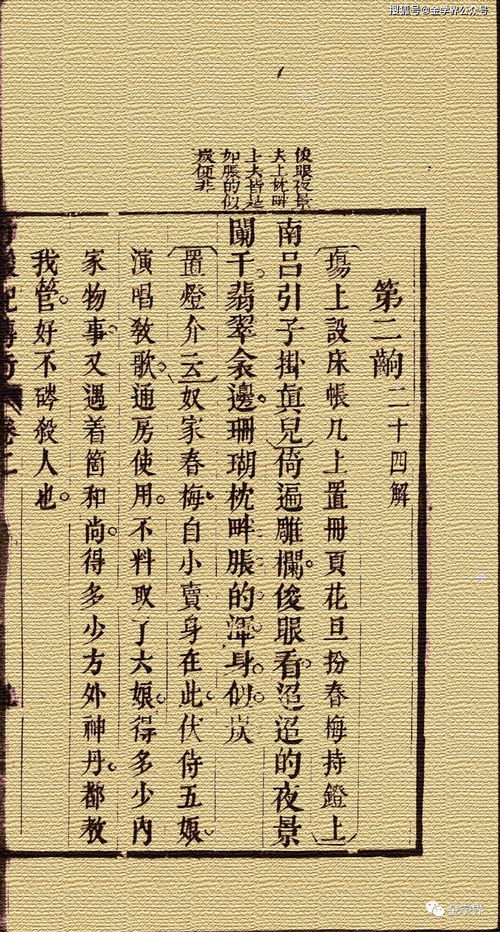 搜狐号@金学界公众号
俊眼夜景
夫上枕畔
上夫皆是
如脹的似
炭便非
第二齣二十四解
場上設床帳几上置冊頁花旦扮春梅持鐙上
南呂引子掛真兒倚遍雕欄。俊眼看。迢迢的夜景
闌干。翡翠衾邊。珊瑚枕畔脹的渾身似炭
置燈介云奴家春梅。自小賣身在此。伏侍五娘。
演唱教歌。通房使用。不料取了大娘。得多少內
家物事。又遇着箇和尚。得多少方外神丹。都教
我管。好不硶殺人也。
後記傳奇 卷二
金学界